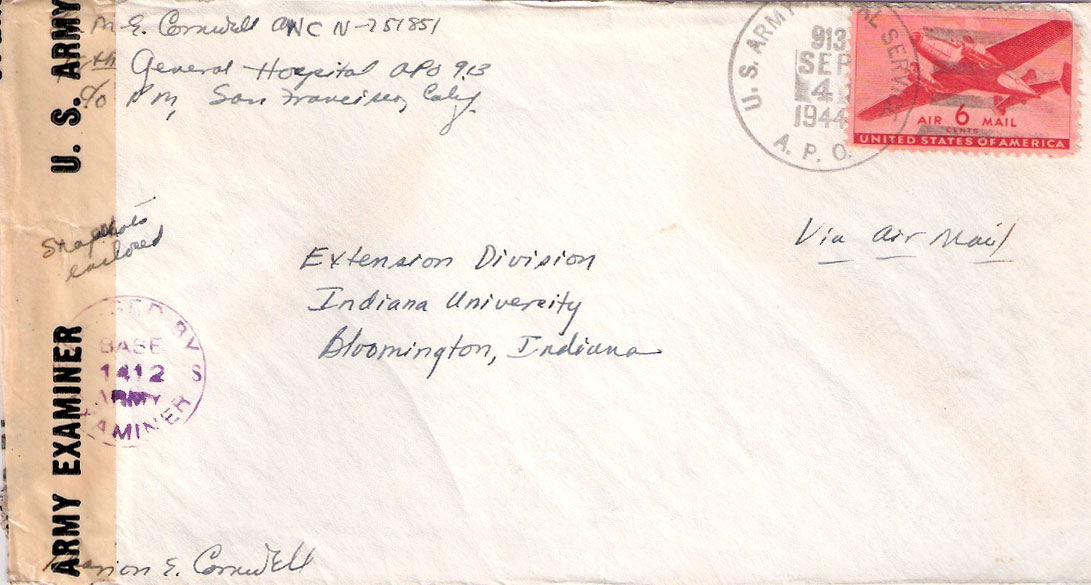 M. E. Cornwell ANC N-751851
General Hospital APO 913
c/o P M, San Francisco, Calif.
U. S. ARMY POSTAL SERVICE
913
SEP
4
1944
A. P. O.
AIR 6 MAIL
CENTS
UNITED STATES OF AMERICA
Via Air Mail
U. S. ARMY
ARMY EXAMINER
Snapshots
enclosed
Extension Division
Indiana University
Bloomington, Indiana
BY
BASE
1412
ARMY
EXAMINER
S
Marion E. Cornwell